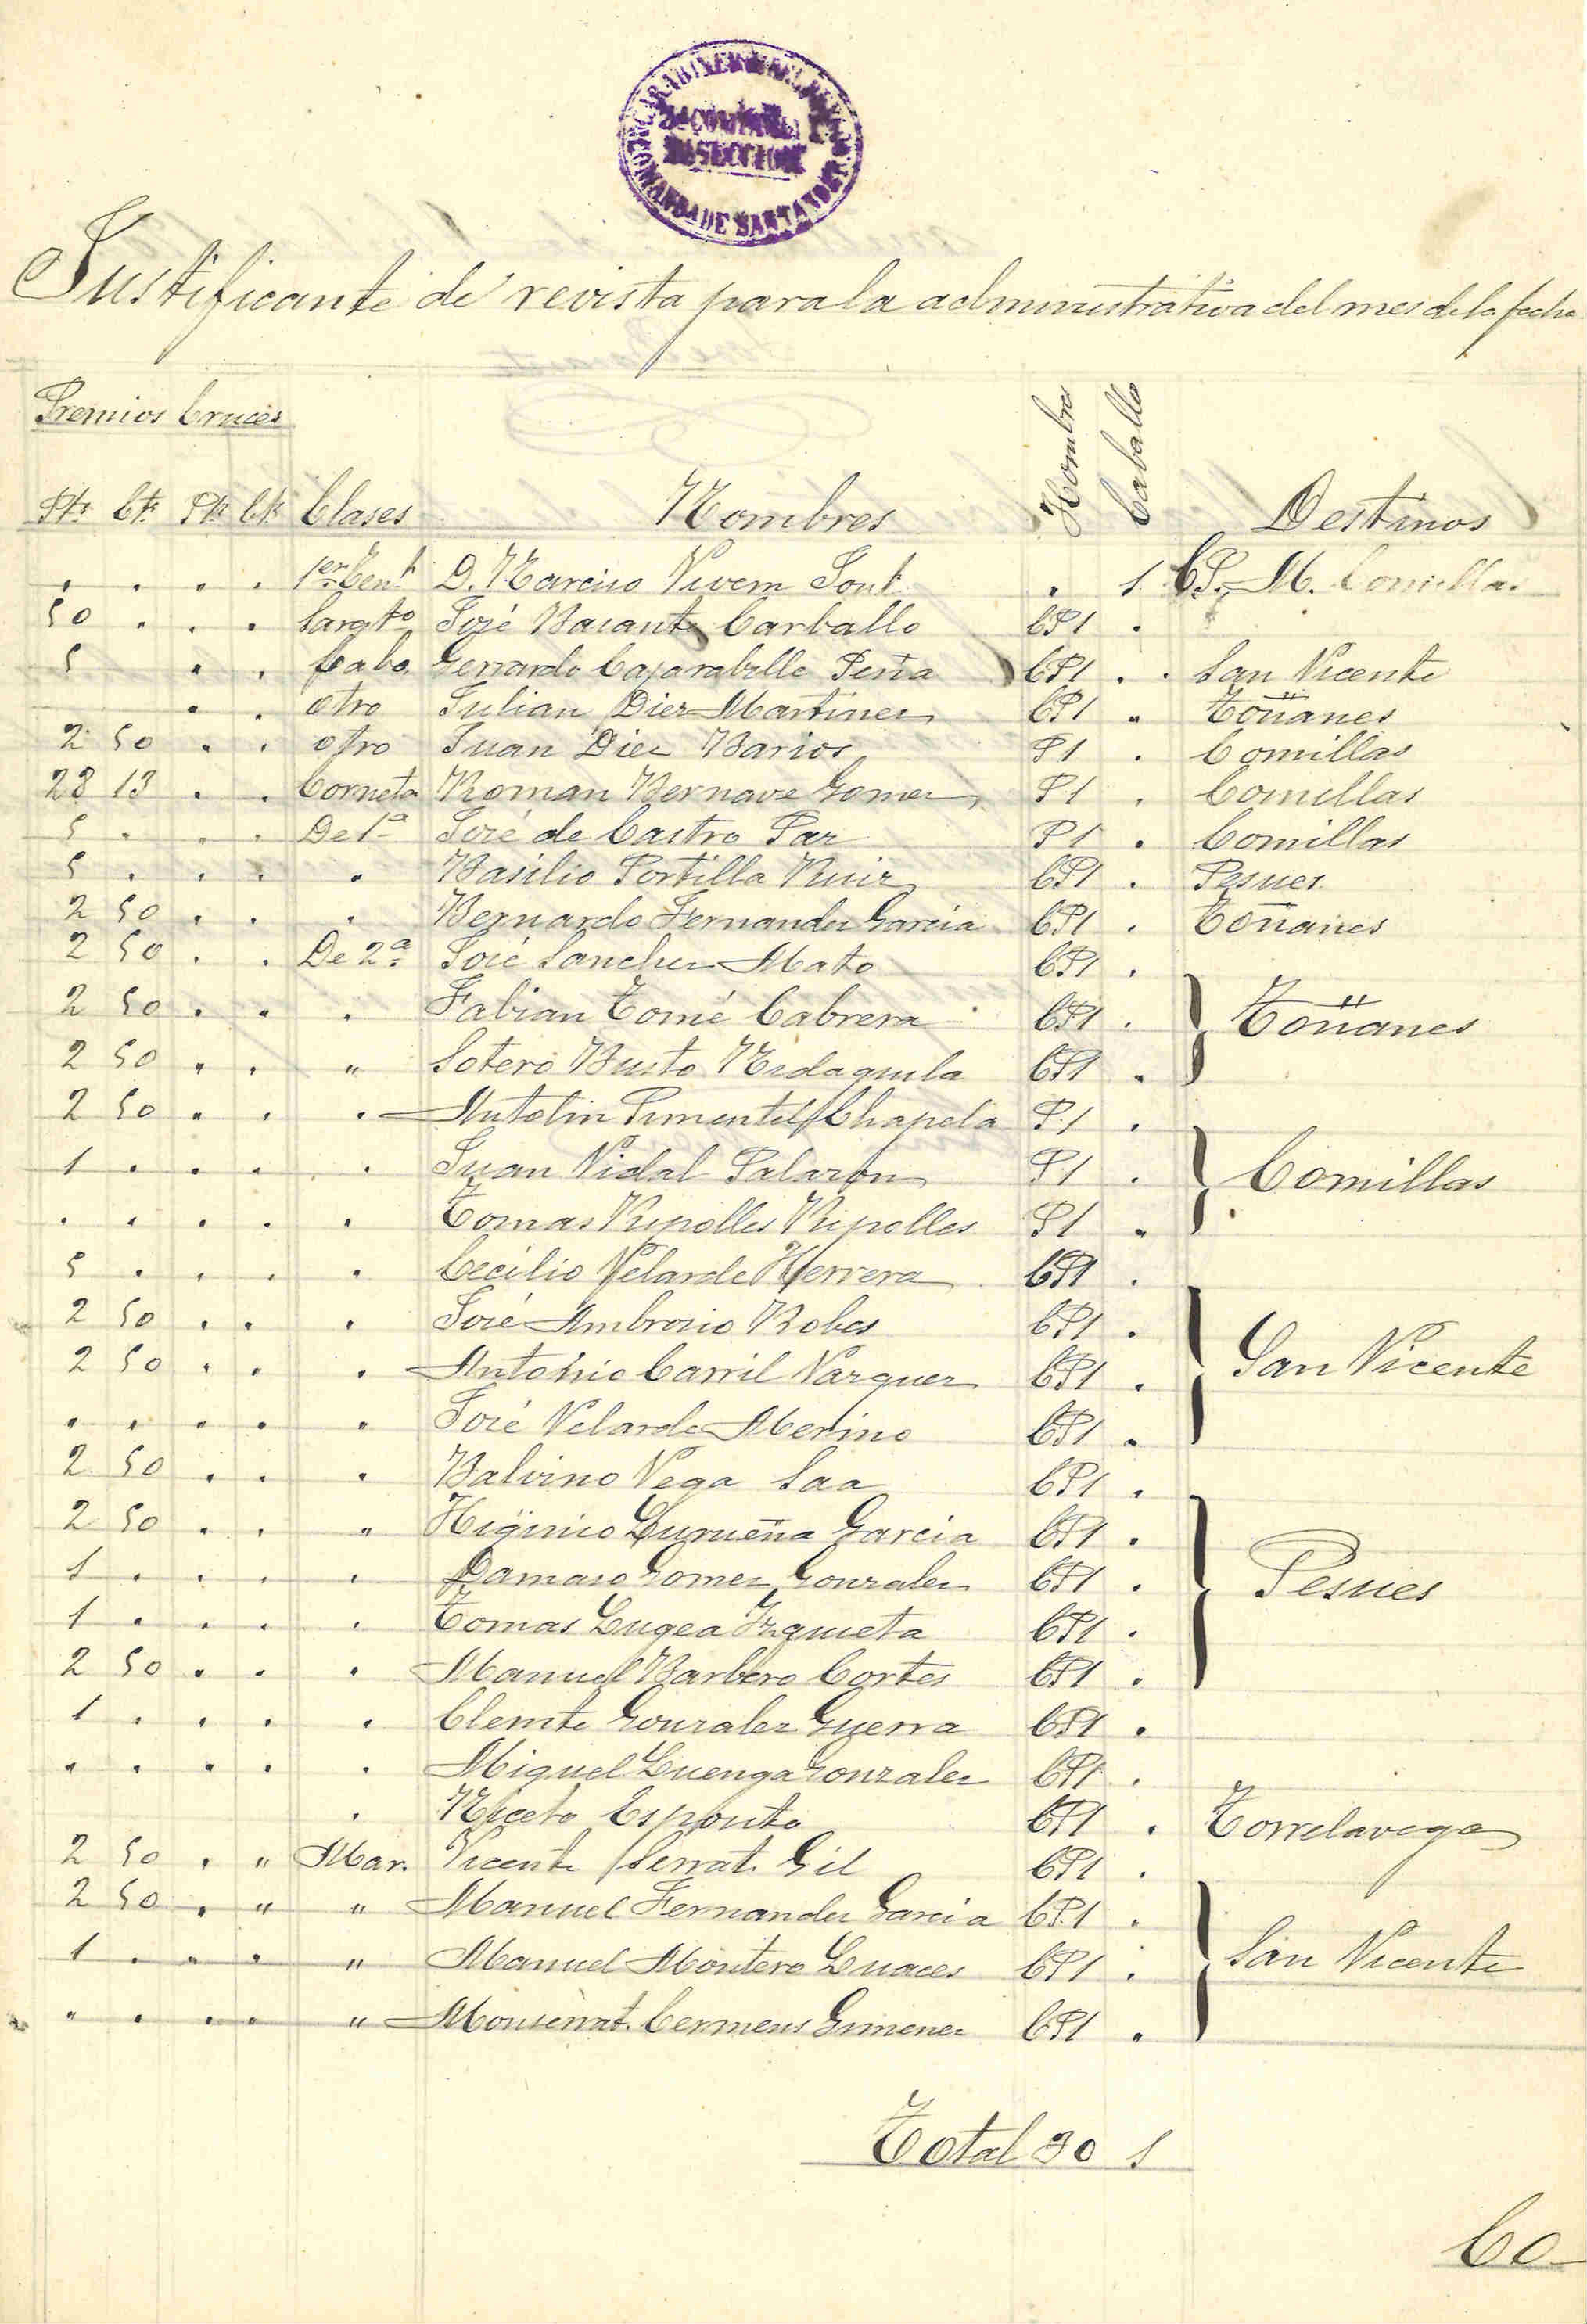 CARABINEROS DEL REINO
COMANDA DE SANTANDER
Justificante de revista para la administrativa del mes de la fecha
Premios Cruces
Hombres
Caballo
Pts Cts Pts Cts Clases Nombres Destinos
. . . . 1er Tent D. Narciso Vivern Font . 1 CP. M. Comillas
50 . . . Sargto José Basante Carballo CP1 .
5 . . Cabo Gerrardo Cajarabille Peña CP1 . . San Vicente
. . otro Julian Diez Martinez CP1 . Toñanes
2 50 . . otro Juan Diez Barios P1 . Comillas
28 13 . . Corneta Roman Bernave Gomez P1 . Comillas
5 . . . De 1ª José de Castro Paz P1 . Comillas
5 . . . . Basilio Portilla Ruiz CP1 . Pesues
2 50 . . . Bernardo Fernandez Garcia CP1 . Toñanes
2 50 . . De 2ª José Sanchez Mato CP1 .
2 50 . . . Fabian Tomé Cabrera CP1 . Toñanes
2 50 . . " Sotero Busto CP1 .
2 50 . . . Antolin Pimentel Chapela P.1 .
1 . . . . Juan Vidal Palazon P1 . Comillas
. . . . . Tomas Ripolles Ripolles P1 .
5 . . . . Cecilio Velarde Herrera CP1 .
2 50 . . . José Ambrosio Robes CP1 .
2 50 . . . Antonio Carril Vazquez CP1 . San Vicente
. . . . . José Velarde Merino CP1 .
2 50 . . . Balvino Vega Saa CP1 .
2 50 . . " Higinio Lurueña Garcia CP1 .
1 . . . . Damaso Gomez Gonzalez CP1 . Pesues
1 . . . . Tomas Lugea Izquieta CP1 .
2 50 . . . Manuel Barbero Cortes CP1 .
1 . . . . Clemte Gonzalez Guerra CP1 .
. . . . . Miguel Luenga Gonzalez CP1 .
. Niceto Esposito CP1 . Torrelavega
2 50 . " Mar. Vicente Serrat Gil CP1 .
2 50 . " " Manuel Fernandez Garcia CP.1 .
1 . . . " Manuel Montero Luaces CP1 . San Vicente
" . . . " Monserrat Cermens Gimenez CP1 .
Total 30 1
Co